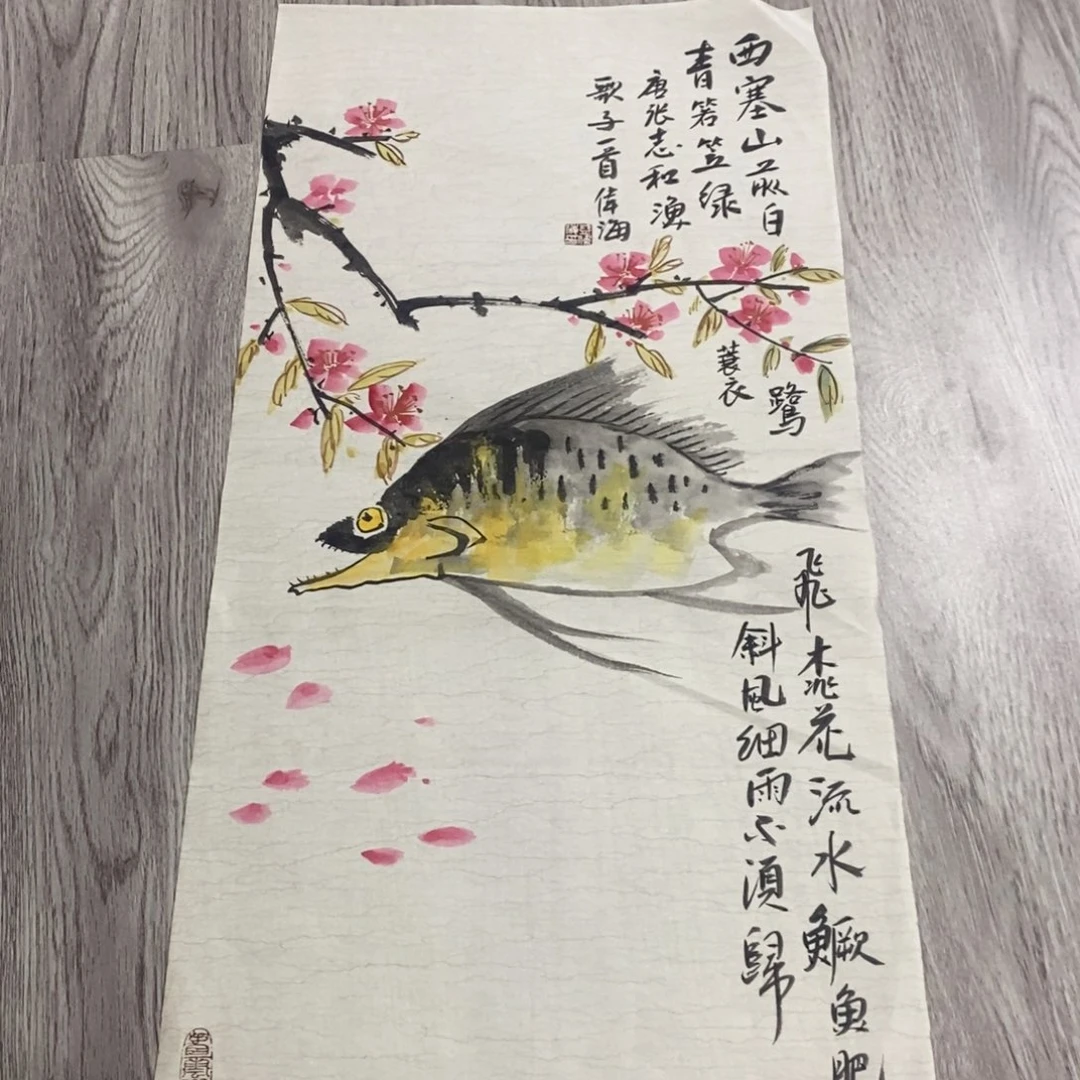 西塞山前白
鹭
飛桃花流水鳜魚肥
青箬笠绿
蓑衣
斜風细雨不須歸
唐张志和渔
歌子一首偉海